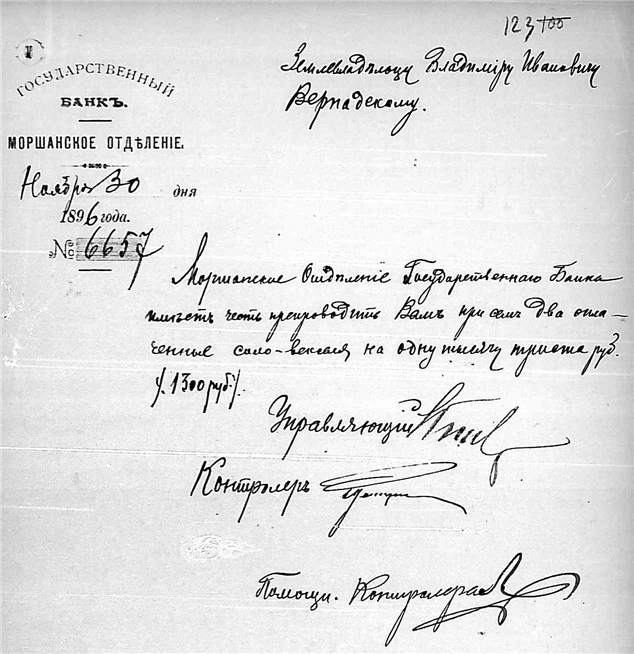 123 100
Землевладѣльцу Владиміру Ивановичу
Вернадскому.
ГОСУДАРСТВЕННЫЙ
БАНКЪ.
МОРШАНСКОЕ ОТДѢЛЕНІЕ.
Ноября 30 дня
1896 года.
№ 6657
Моршанское Отдѣленіе Государственнаго Банка
имѣетъ честь препроводить Вамъ при семъ два опла-
ченные соло-векселя на одну тысячу триста руб.
/. 1300 руб./.
Управляющій
Контролеръ
Помощн. Контролера